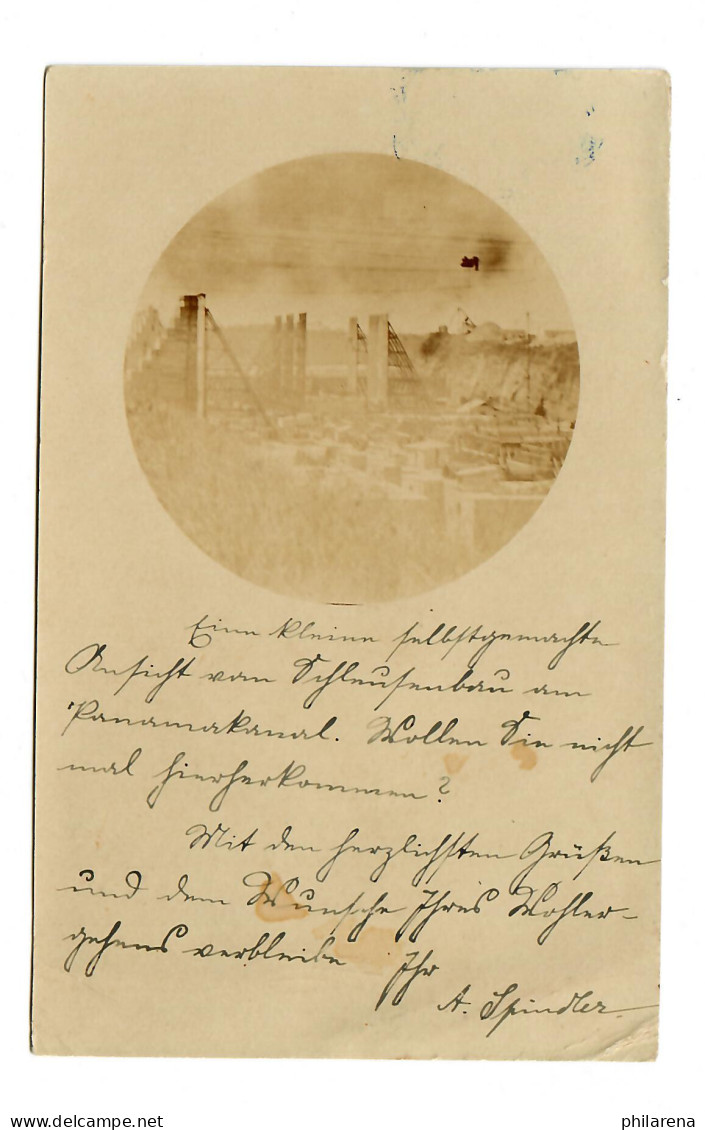 Eine kleine selbstgemachte
Ansicht vom Schleusenbau am
Panamakanal. Wollen Sie nicht
mal hierherkommen?
Mit den herzlichsten Grüßen
und dem Wunsche Ihres Wohler-
gehens verbleibe Ihr
A. Spindler
philarena